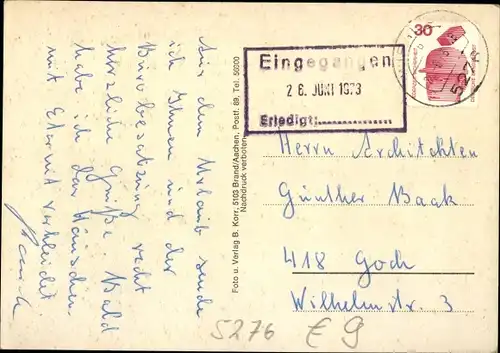 Aus dem Urlaub sende
ich Ihnen und der
Bürobesatzung recht
herzliche Grüße. Bald
habe ich das Häuschen
mit Eternit verkleidet
Foto u. Verlag B. Korr, 5103 Brand/Aachen, Postf. 89, Tel. 50300
Nachdruck verboten
Eingegangen
26. JUNI 1973
Erledigt:
30
522
Herrn Architekten
Günther Baak
418 Goch
Wilhelmstr. 3
5276 € 9